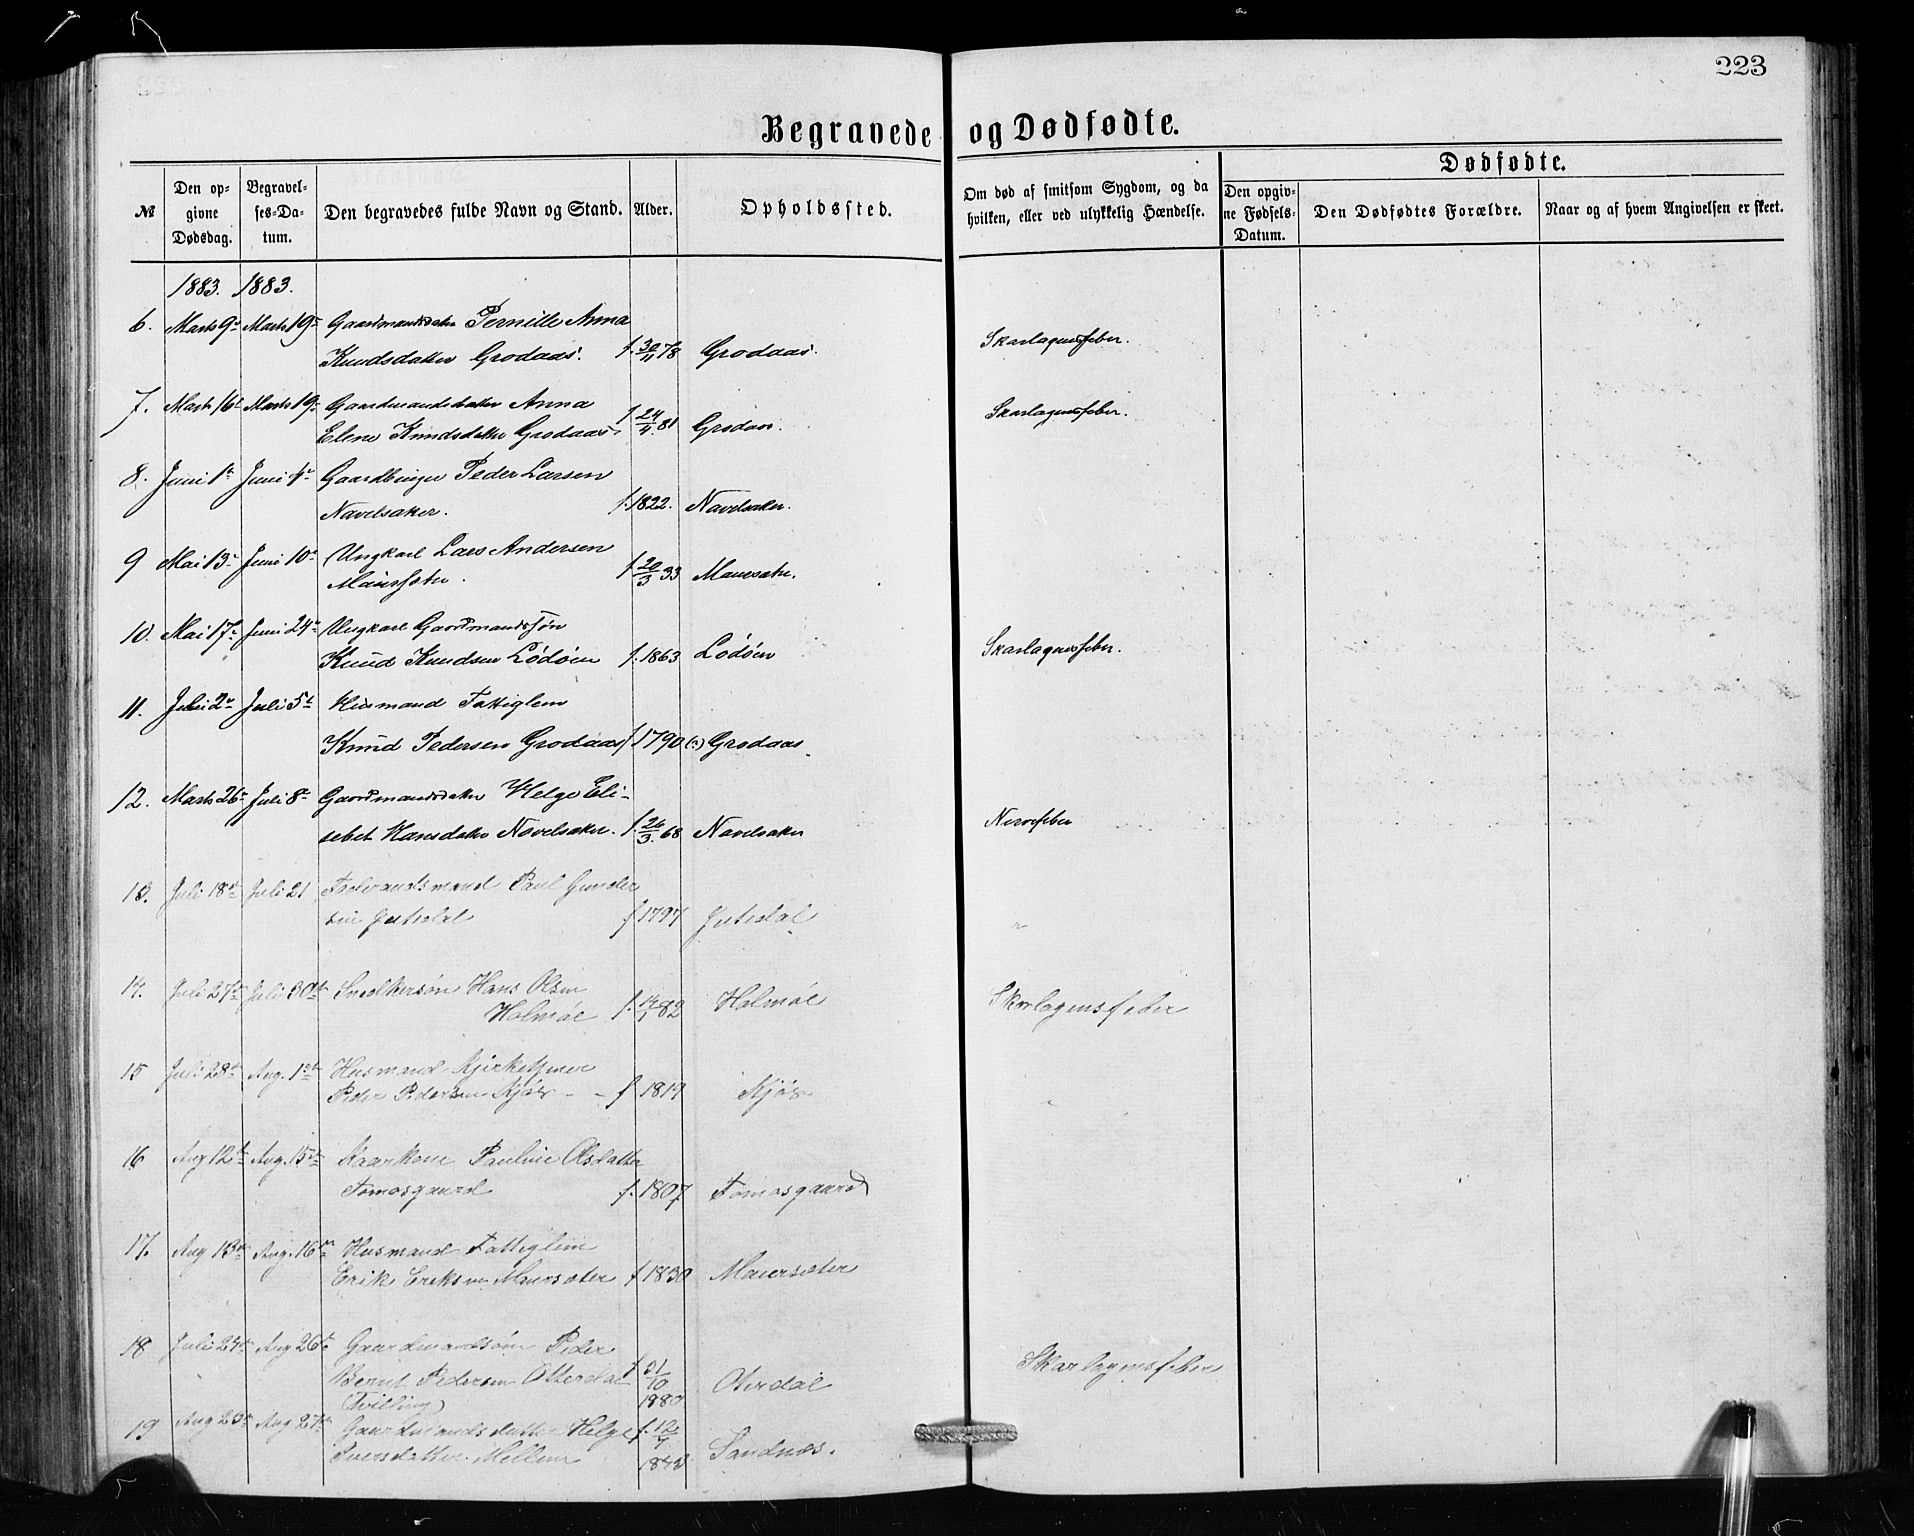 223
Begravede og Dødfødte.
Dødfødte.
№ Den opgivne Dødsdag. Begravelses-Datum. Den begravedes fulde Navn og Stand. Alder. Opholdssted. Om død af smitsom Sygdom, og da hvilken, eller ved ulykkelig Hændelse. Den opgivne Fødsels-Datum. Den Dødfødtes Forældre. Naar og af hvem Angivelsen er skeet.
1883. 1883.
6. Marts 9de Marts 19de Gaardmandsdatter Pernille Anna
Knudsdatter Grodaas. f. 30/11 78 Grodaas. Skarlagensfeber.
7. Marts 16de Marts 19de Gaardmandsdatter Anna
Elene Knudsdatter Grodaas f. 24/4.81 Grodaas. Skarlagensfeber.
8. Juni 1te Juni 4de Gaardbruger Peder Larsen
Navelsaker. f. 1822. Navelsaker.
9 Mai 13de Juni 10de Ungkarl Lars Andersen
Maursæter. f. 20/3 33 Maursæter.
10. Mai 17de Juni 24de Ungkarl Gaardmandssøn
Knud Knudsen Lødøen f. 1863 Lødøen Skarlagensfeber.
11. Juli 2den Juli 5te Husmand Fattiglem
Knud Pedersen Grodaas f 1790 (?) Grodaas
12. Marts 26de Juli 8de Gaardmandsdatter Helge Eli-
sebet Hansdatter Navelsaker. f. 26/3.68 Navelsaker Nervefeber
13. Juli 18de Juli 21 Føderaadsmand Paul Gunder
sen f 1797 "
14. Juli 27de Juli 30te Snedkersøn Hans Olsen
Holmøe f. 14/1 82 Holmøe Skarlagensfeber
15 Juli 28de Aug. 1ste Husmand Kirketjener
Peder Pedersen Kjøs - - f 1819 Kjøs "
16 Aug 12te Aug. 15de Kaarkone Pauline Olsdatter
Tomasgaard f. 1807 Tomasgaard
17. Aug 13de Aug. 16de Husmand Fattiglem
Erik Eriksen Maursæter f 1830 Maursæter
18 Juli 24de Aug 26de Gaardmandsøn Peder
Bernt Pedersen Otterdal f 31/10 Oterdal Skarlagensfeber
(Tvilling) 1880
19 Aug 23de Aug 27de Gaardmandsdatter Helge f. 12/7
Iversdatter Mellem Sandnæs.